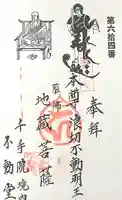 第六拾四番
奉拝
本尊浪切不動明王
地蔵菩薩
千手院境内
不動堂